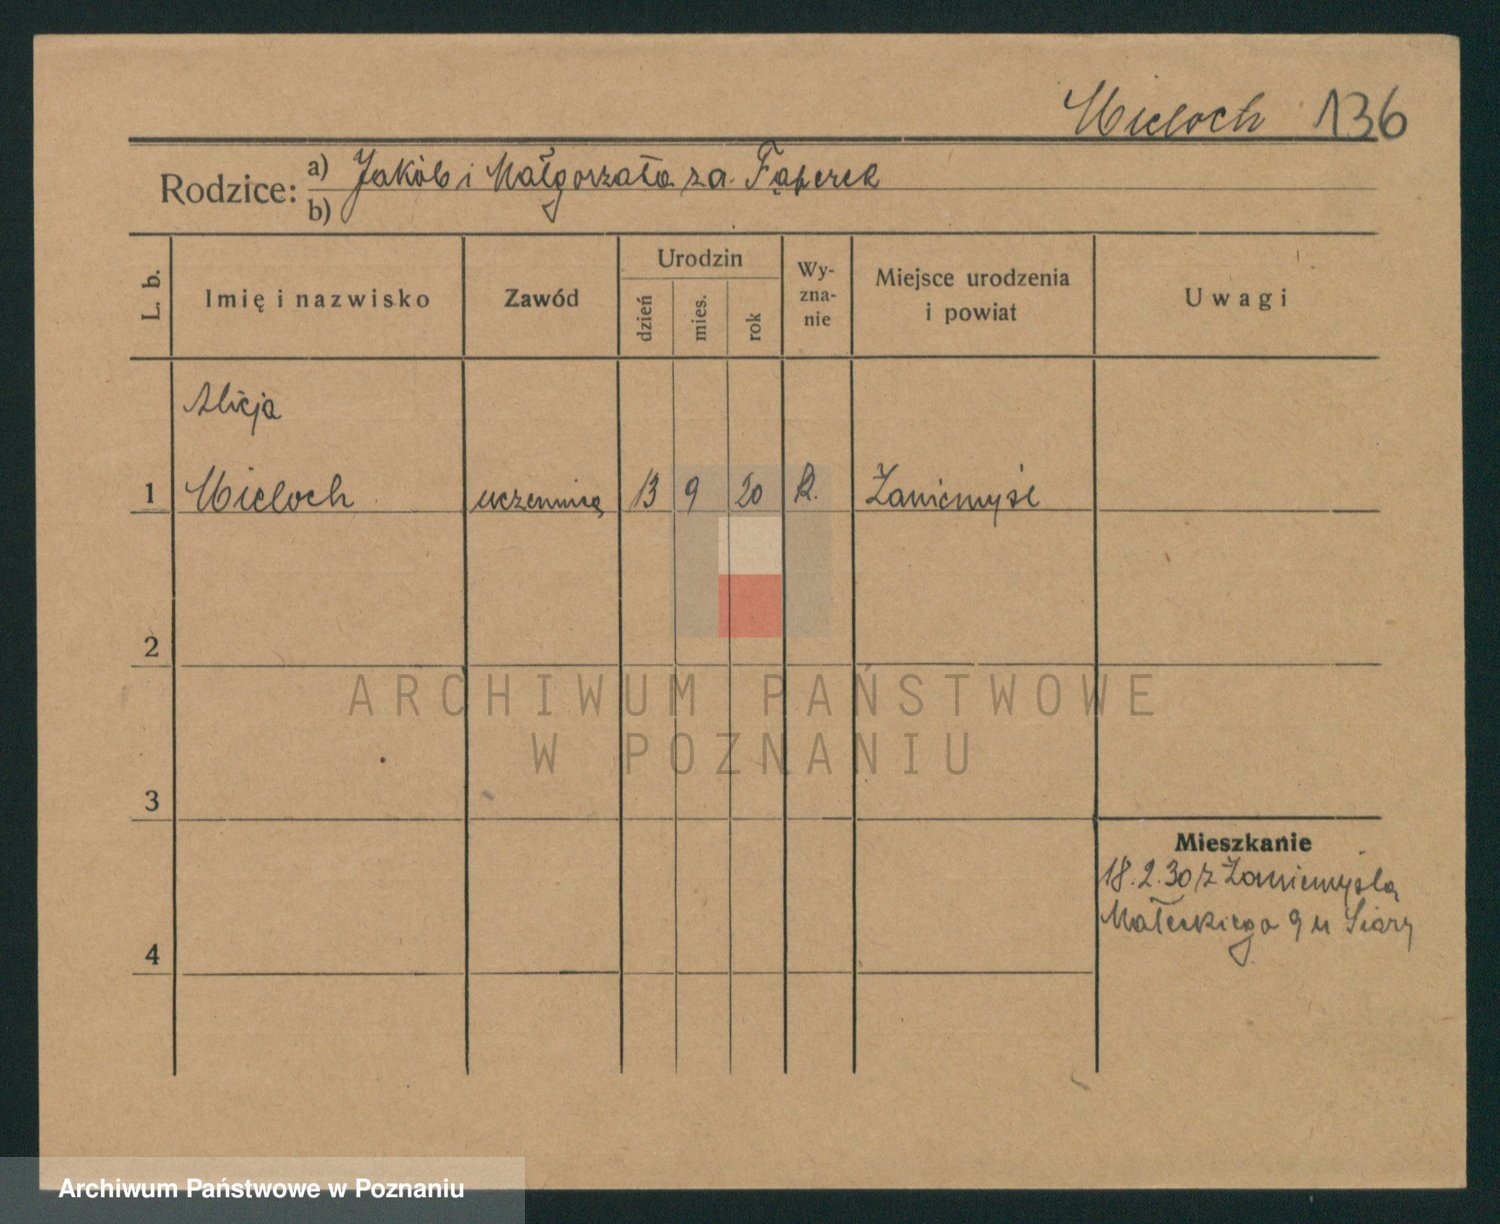 Mieloch 136
Rodzice: a) Jakób i Małgorzata za.
b)
L. b.
Imię i nazwisko
Zawód
Urodzin
dzień
mies.
rok
Wy-
zna-
nie
Miejsce urodzenia
i powiat
Uwagi
Alicja
1 Mieloch uczennica 13 9 20 R. Zaniemyśl
2
3
4
Mieszkanie
18.2.30 z Zaniemyśla
Małeckiego 9 u
ARCHIWUM PAŃSTWOWE
W POZNANIU
Archiwum Państwowe w Poznaniu